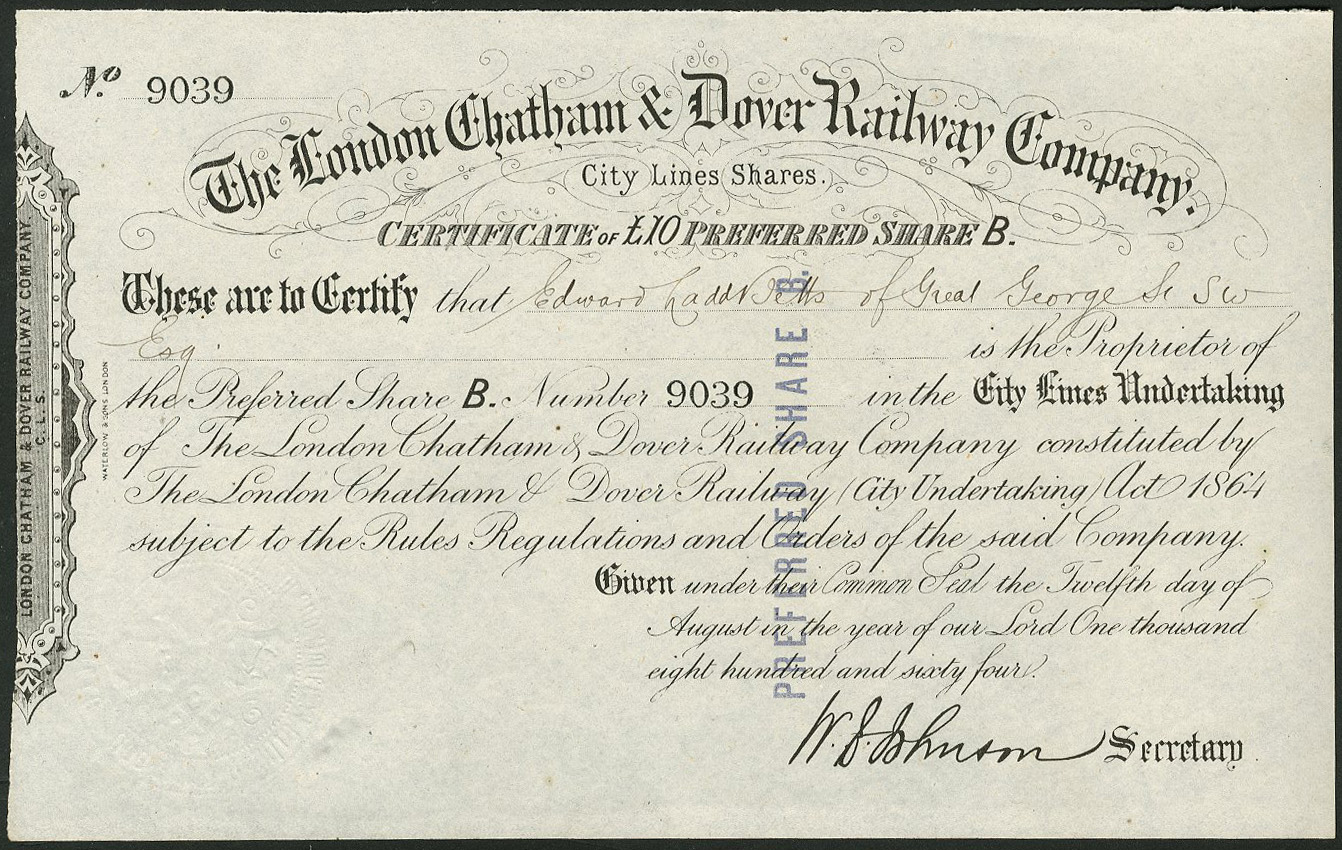 No. 9039
The London Chatham & Dover Railway Company.
City Lines Shares.
CERTIFICATE OF £10 PREFERRED SHARE B.
These are to Certify that Edward Ladd Betts of Great George St SW
Esq. is the Proprietor of
the Preferred Share B. Number 9039 in the City Lines Undertaking
of The London Chatham & Dover Railway Company constituted by
The London Chatham & Dover Railway (City Undertaking) Act 1864
subject to the Rules Regulations and Orders of the said Company.
Given under their Common Seal the Twelfth day of
August in the year of our Lord One thousand
eight hundred and sixty four.
W. D. Johnson Secretary
PREFERRED SHARE B.
LONDON CHATHAM & DOVER RAILWAY COMPANY.
C. L. S.
WATERLOW & SONS LONDON